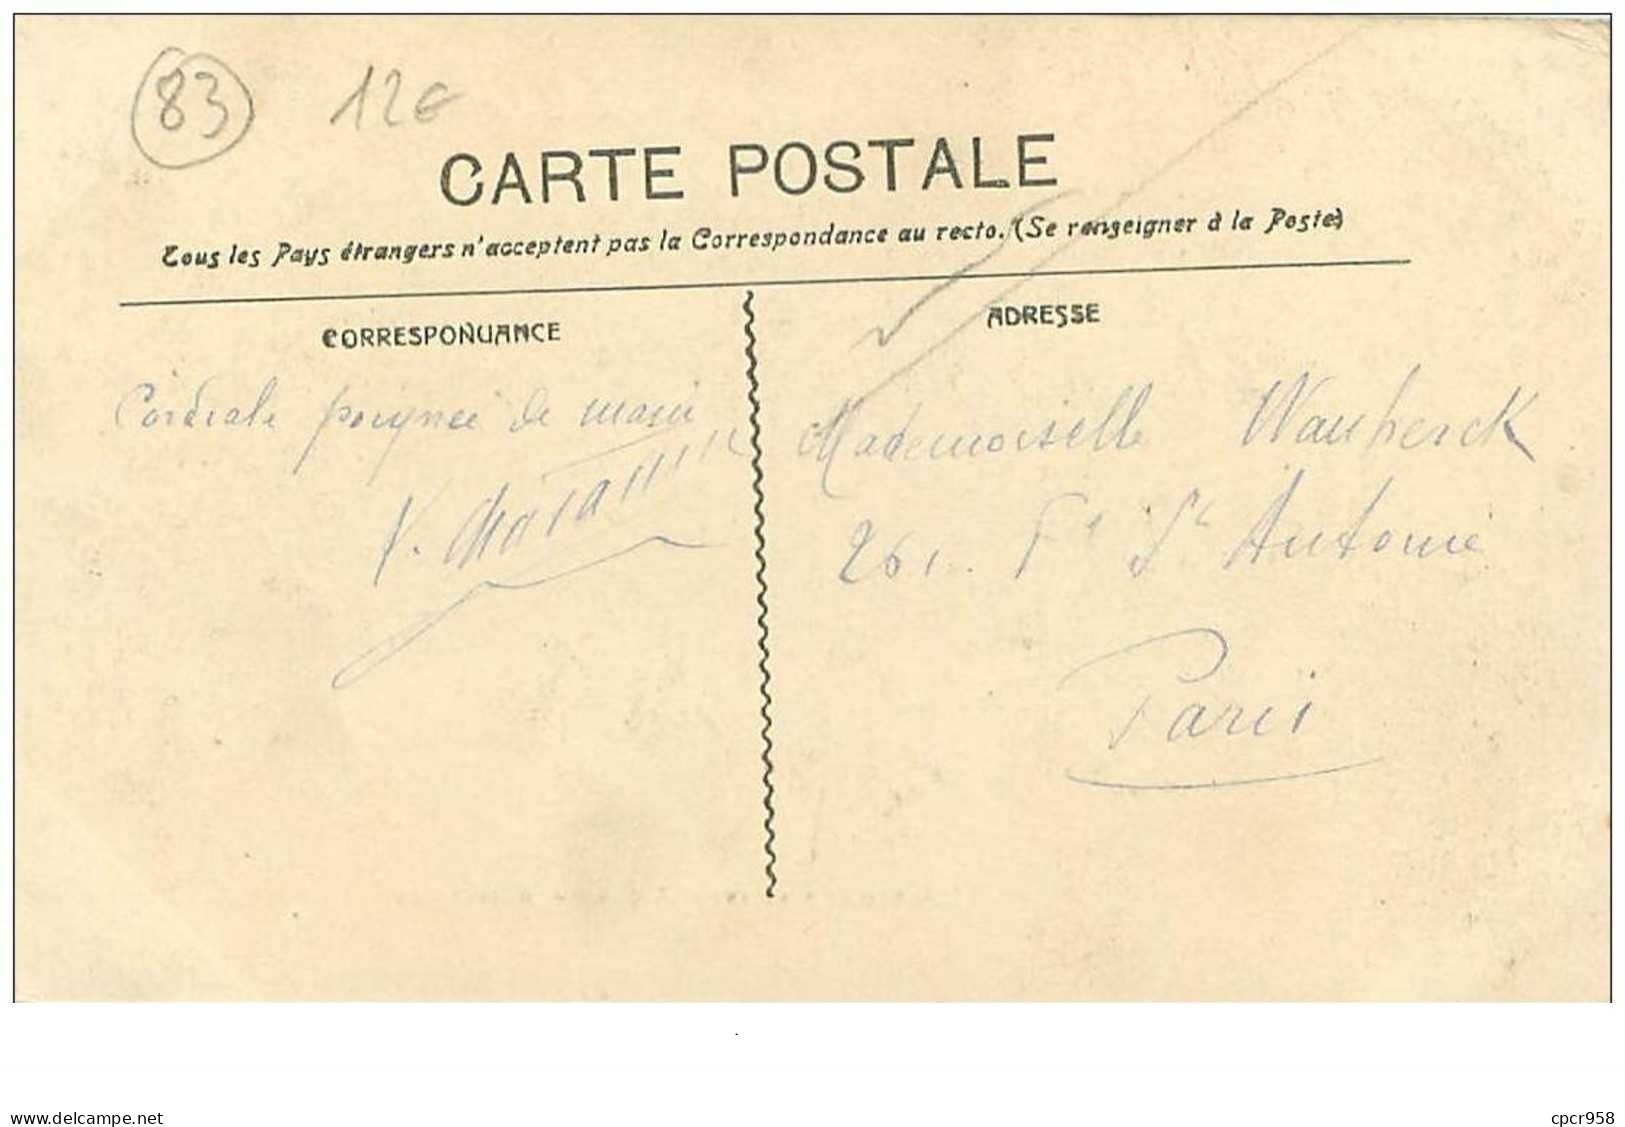 83 12€
CARTE POSTALE
Tous les Pays étrangers n'acceptent pas la Correspondance au recto. (Se renseigner à la Poste)
CORRESPONDANCE
ADRESSE
Cordiale poignée de main
Mademoiselle
261 Fg St Antoine
Paris
www.delcampe.net
cpcr958